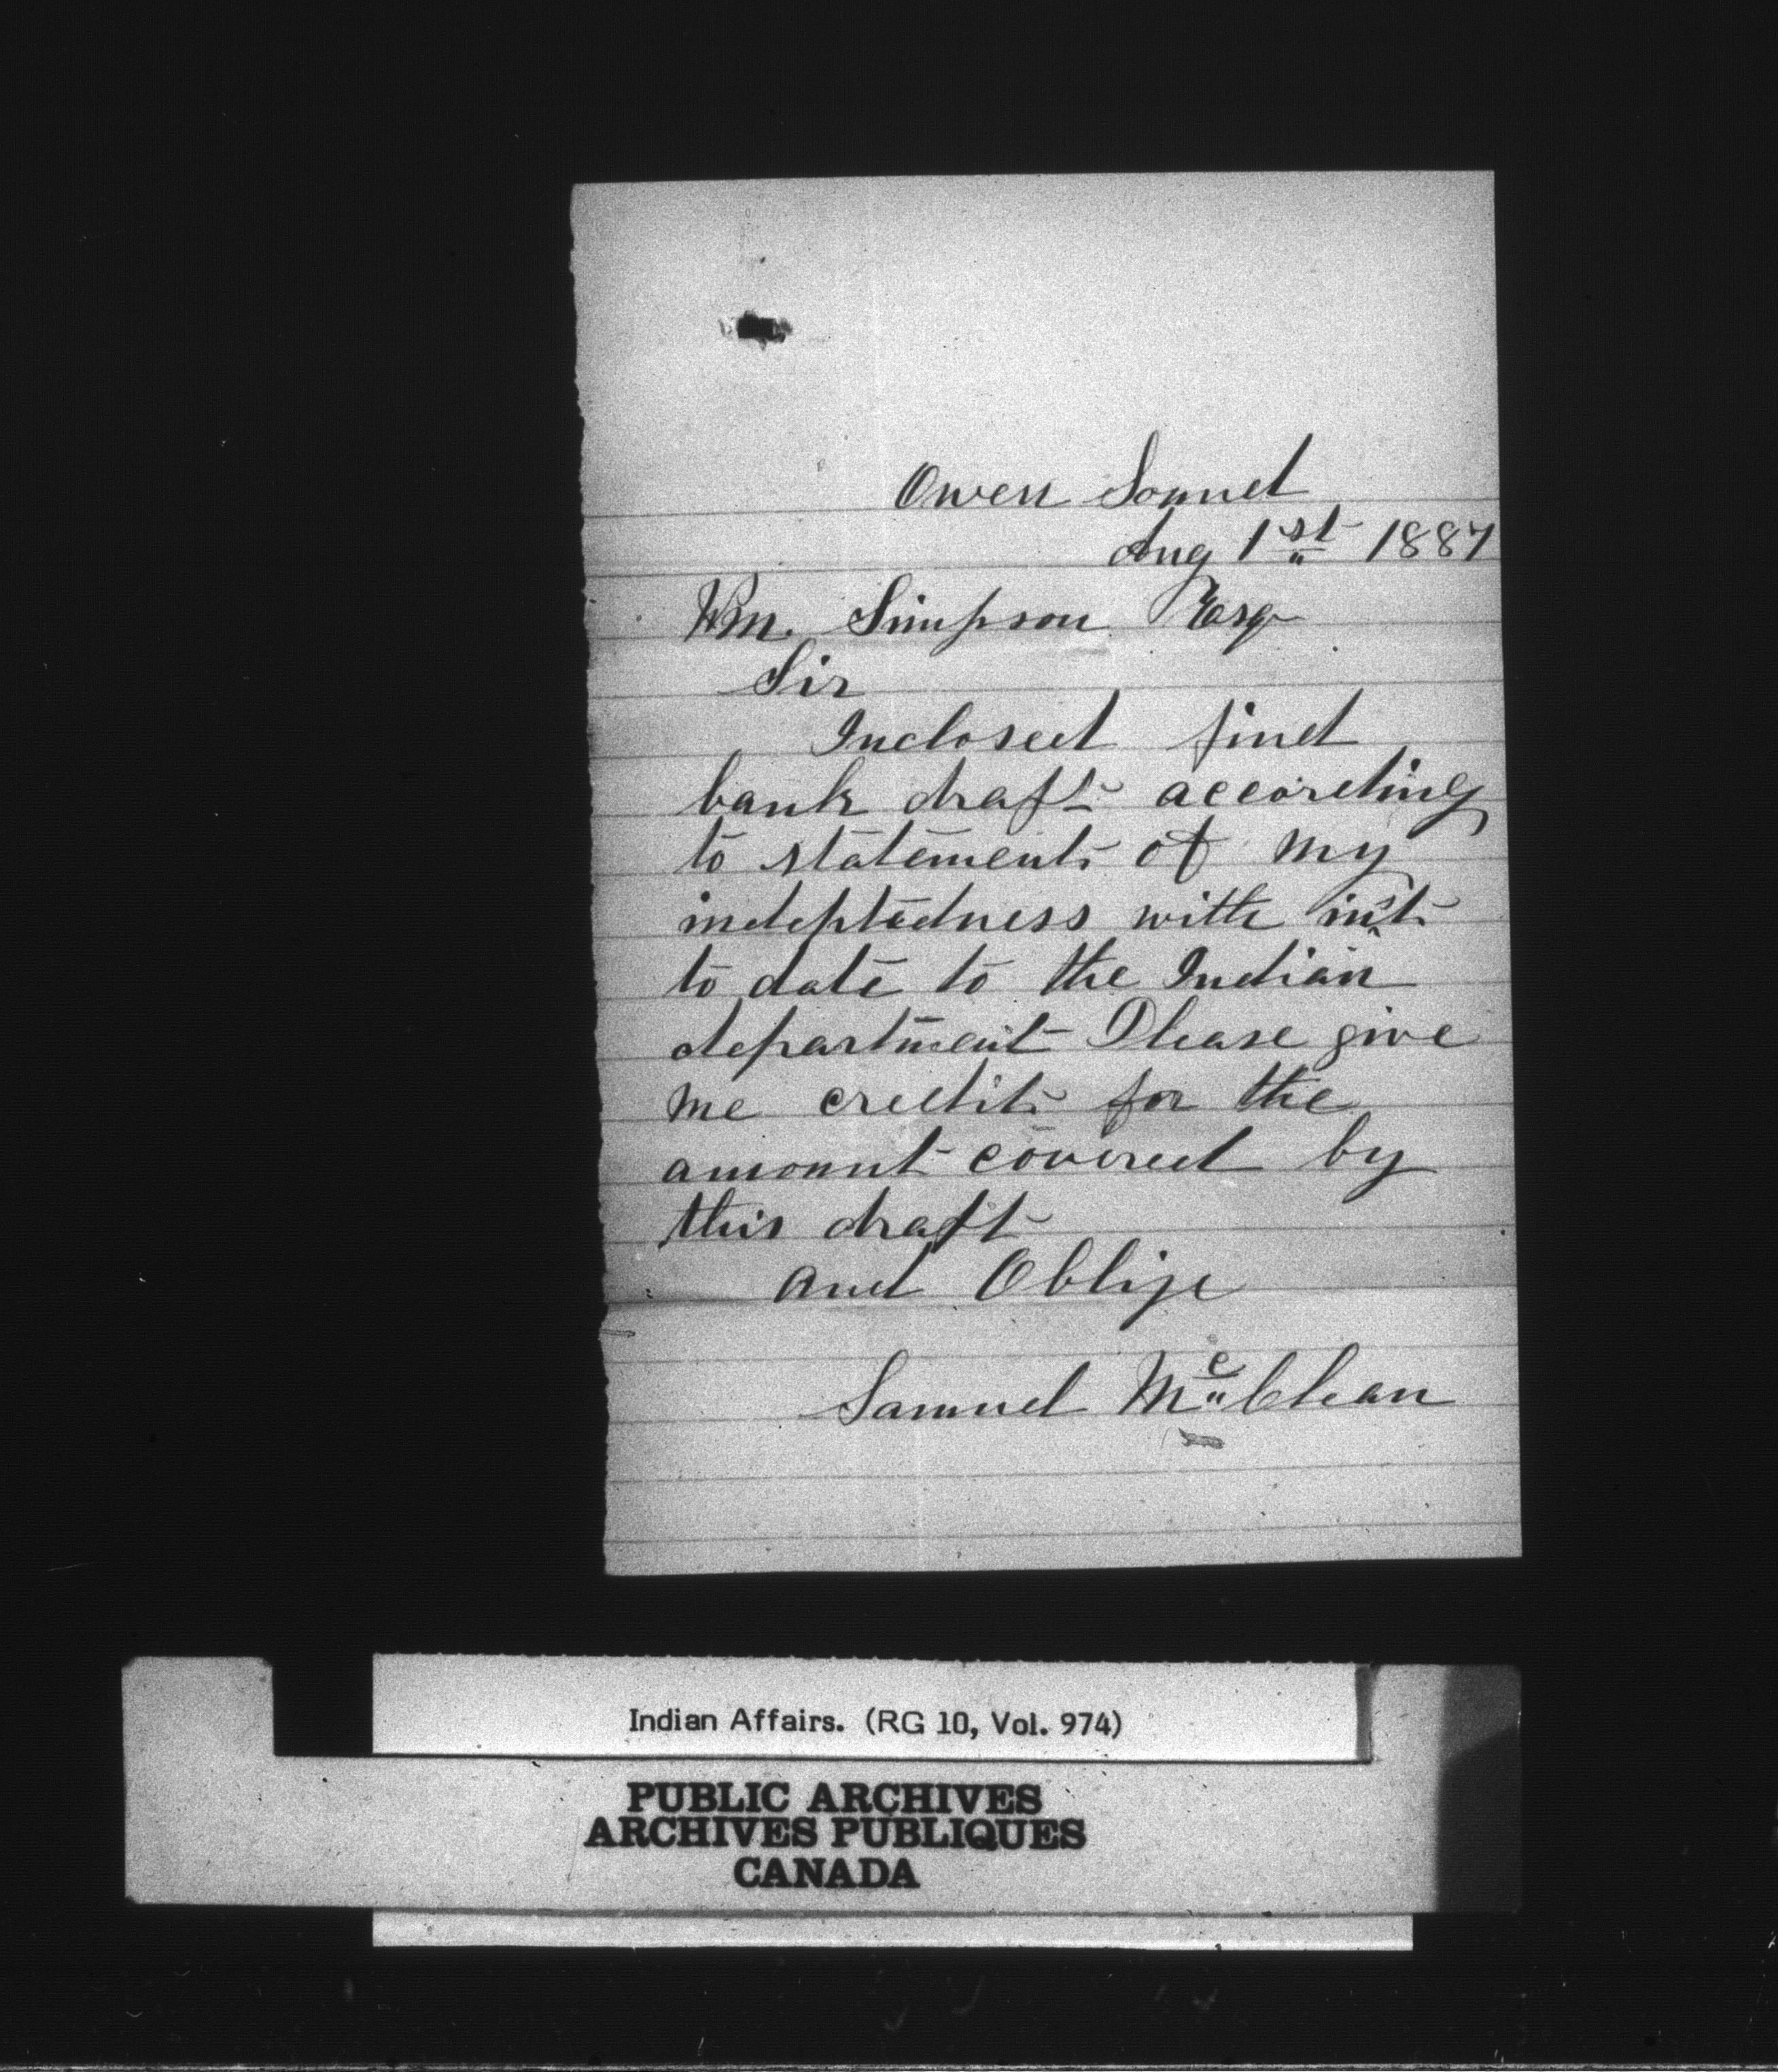 Owen Sound
Aug 1st 1887
Wm. Simpson Esq
Sir
Inclosed find
bank draft according
to statement of my
indeptedness with int
to date to the Indian
department Please give
me credit for the
amount covered by
this draft
and Oblige
Samuel McClean
Indian Affairs. (RG 10, Vol. 974)
PUBLIC ARCHIVES
ARCHIVES PUBLIQUES
CANADA